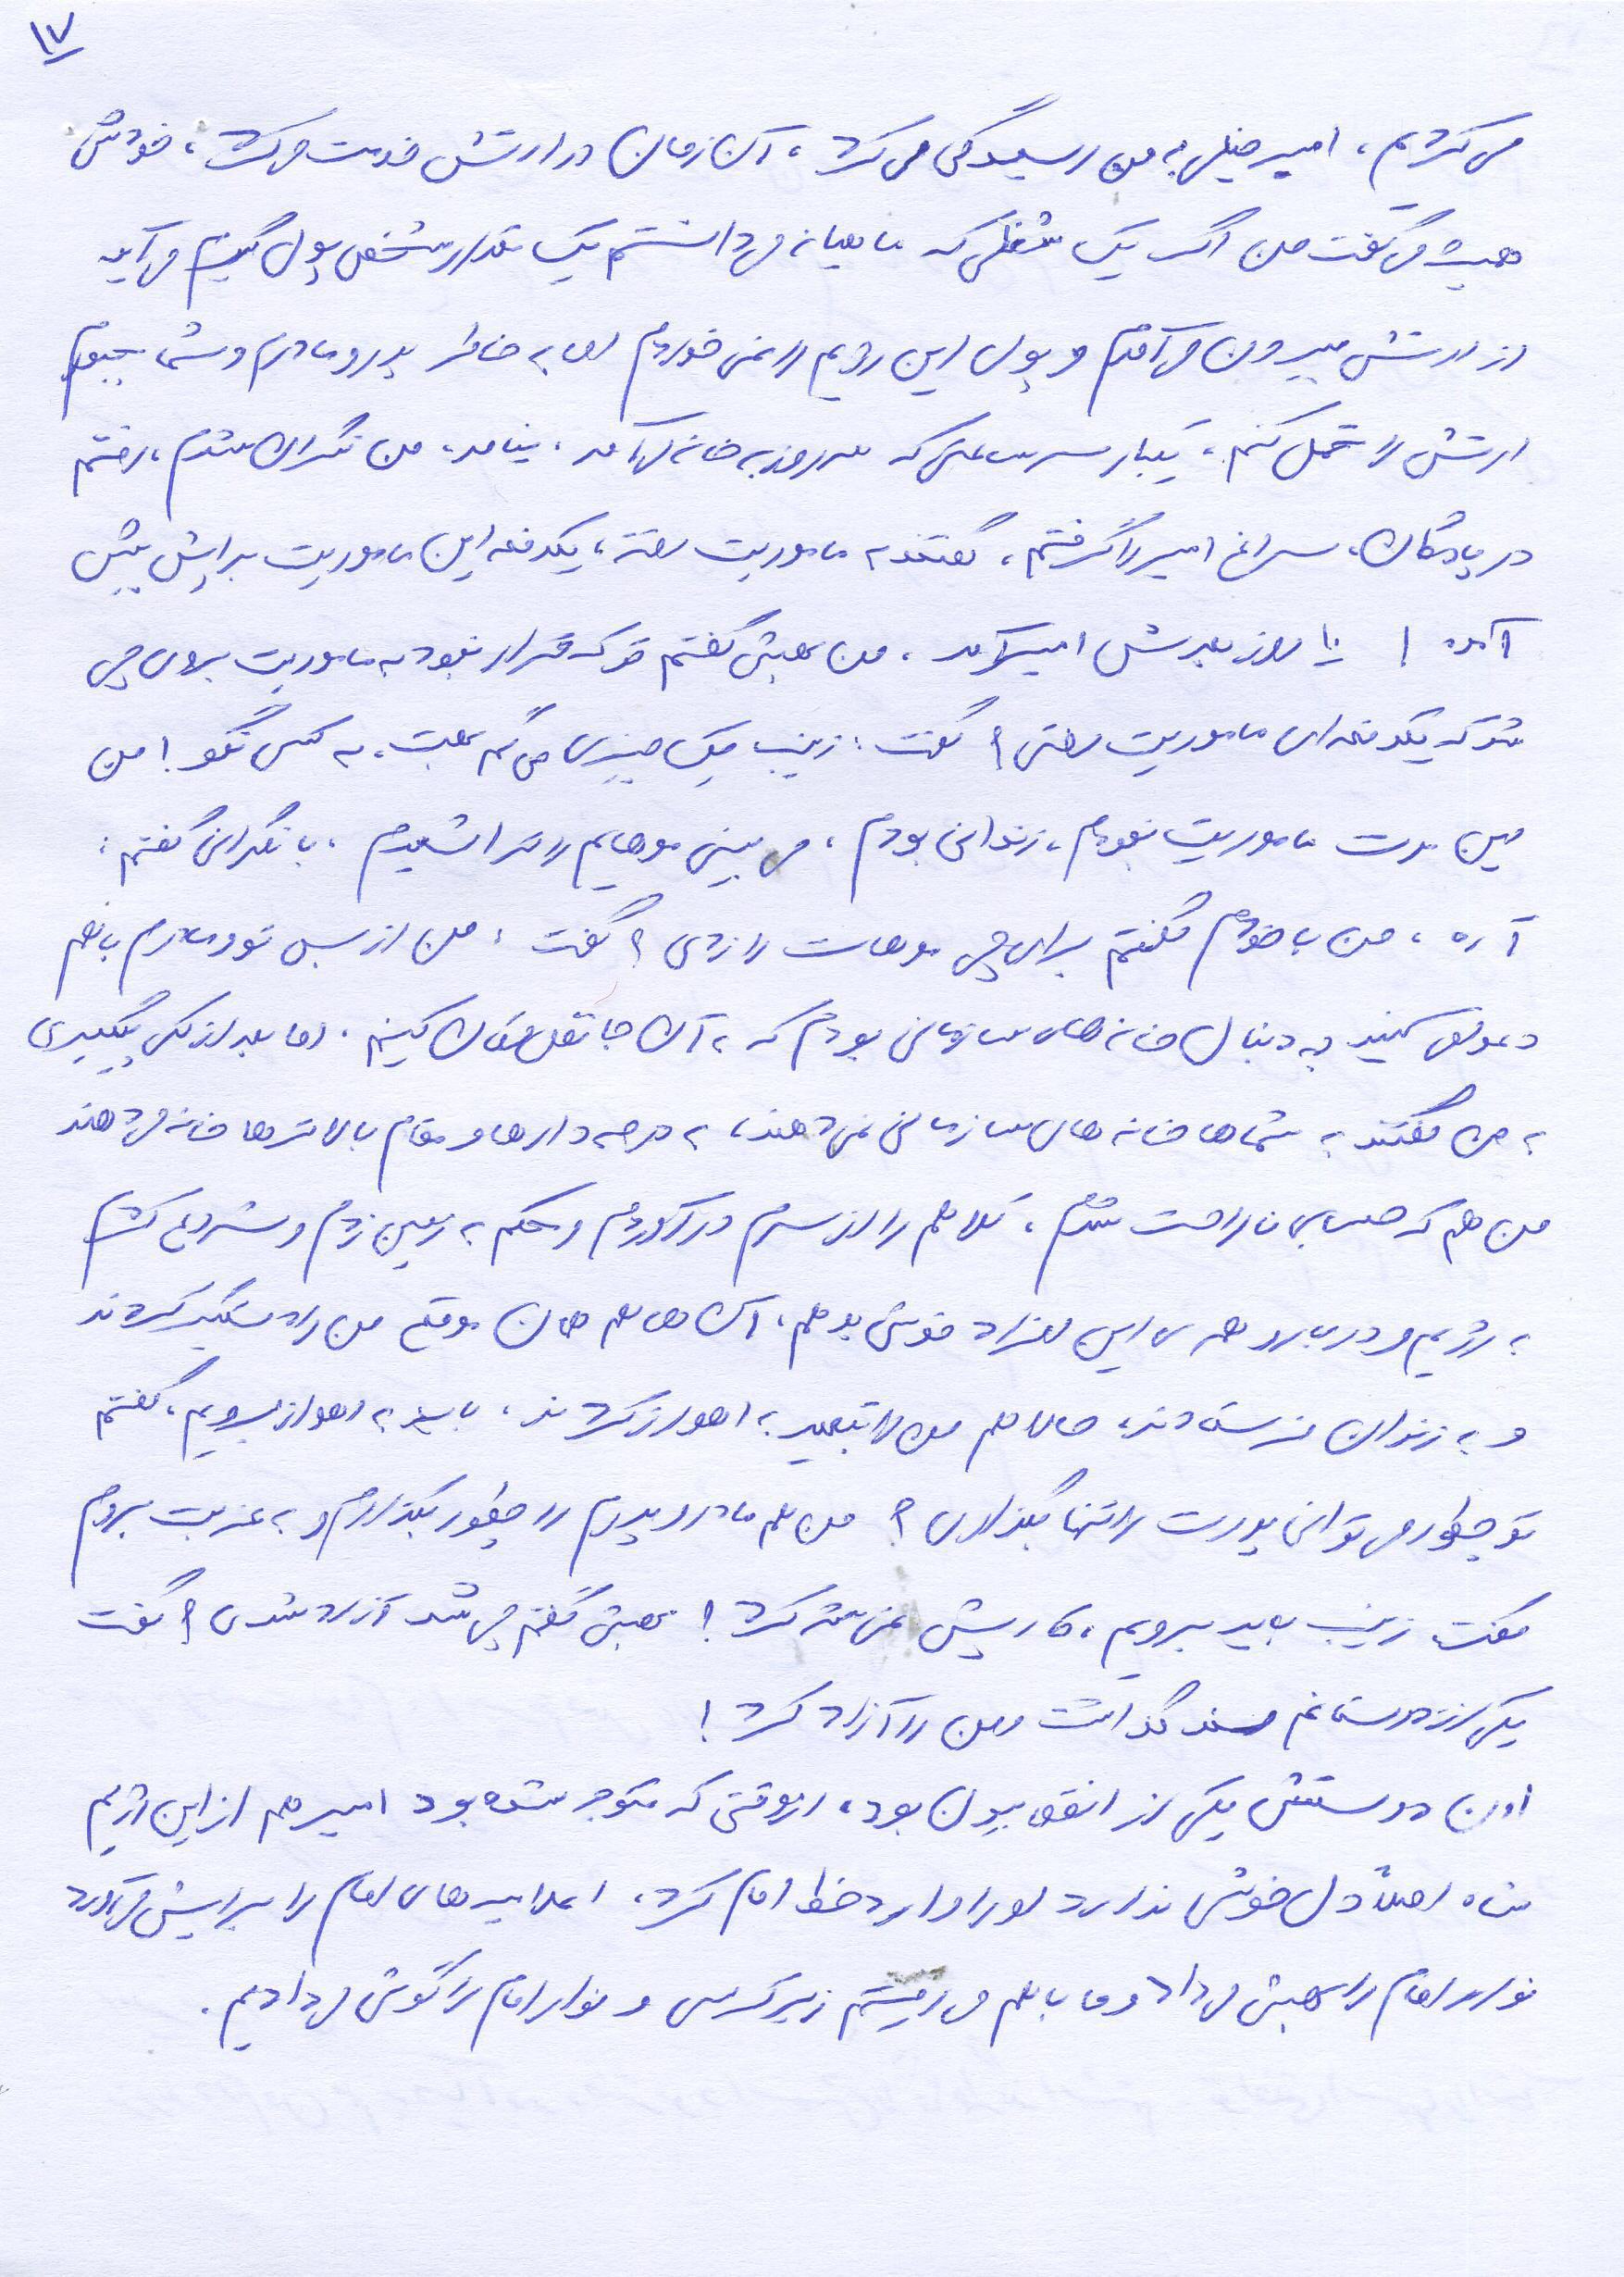 ۱۷
می‌کردیم، امیر خیلی به من رسیدگی می‌کرد، آن زمان در ارتش خدمت می‌کرد، خودش
همیشه می‌گفت من اگر یک شغلی که ماهیانه می‌دانستم یک مقدار مشخص پول گیرم می‌آید
از ارتش بیرون می‌آمدم و پول این رژیم را نمی‌خوردم اما به خاطر پدر و مادرم و شما مجبورم
ارتش را تحمل کنم، یکبار سر ساعتی که هر روز به خانه می‌آمد، نیامد، من نگران شدم، رفتم
در پادگان، سراغ امیر را گرفتم، گفتند به ماموریت رفته، یکدفعه این ماموریت برایش پیش
آمده! تا روز بعدش امیر آمد، من بهش گفتم تو که قرار نبود به ماموریت بروی چی
شد که یکدفعه‌ای ماموریت رفتی؟ گفت: زینب یک چیزی می‌گم بهت، به کسی نگو! من
این مدت ماموریت نبودم، زندانی بودم، می‌بینی موهایم را تراشیدم، با نگرانی گفتم:
آره، من با خودم گفتم برای چی موهات را زدی؟ گفت: من از بس تو و مادرم با هم
دعوا می‌کنید به دنبال خانه‌های سازمانی بودم که به آن جا نقل مکان کنیم. اما بعد از کلی پیگیری
به من گفتند به شماها خانه‌های سازمانی نمی‌دهند، به درجه‌دارها و مقام بالاترها خانه می‌دهند
من هم که حسابی ناراحت شدم، کلاهم را از سرم در آوردم و محکم به زمین زدم و شروع کردم
به رژیم و دربار و همه‌ی این افراد فحش بدهم، آن‌ها هم همان موقع من را دستگیر کردند
و به زندان فرستادند، حالا هم من را تبعید به اهواز کردند، باید به اهواز برویم، گفتم
تو چطور می‌توانی پدرت را تنها بگذاری؟ من هم مادر و پدرم را چطور بگذارم و به غربت بروم
گفت زینب باید برویم، کاریش نمی‌شه کرد! بهش گفتم چی شد آزاد شدی؟ گفت
یکی از دوستانم سند گذاشت و من را آزاد کرد!
اون دوستش یکی از انقلابیون بود، از وقتی که متوجه شده بود امیر هم از این رژیم
شاه اصلاً دل خوشی ندارد او را وارد خط امام کرد، اعلامیه‌های امام را برایش می‌آورد
نوار امام را بهش می‌داد و ما با هم می‌رفتیم زیر کرسی و نوار امام را گوش می‌دادیم.